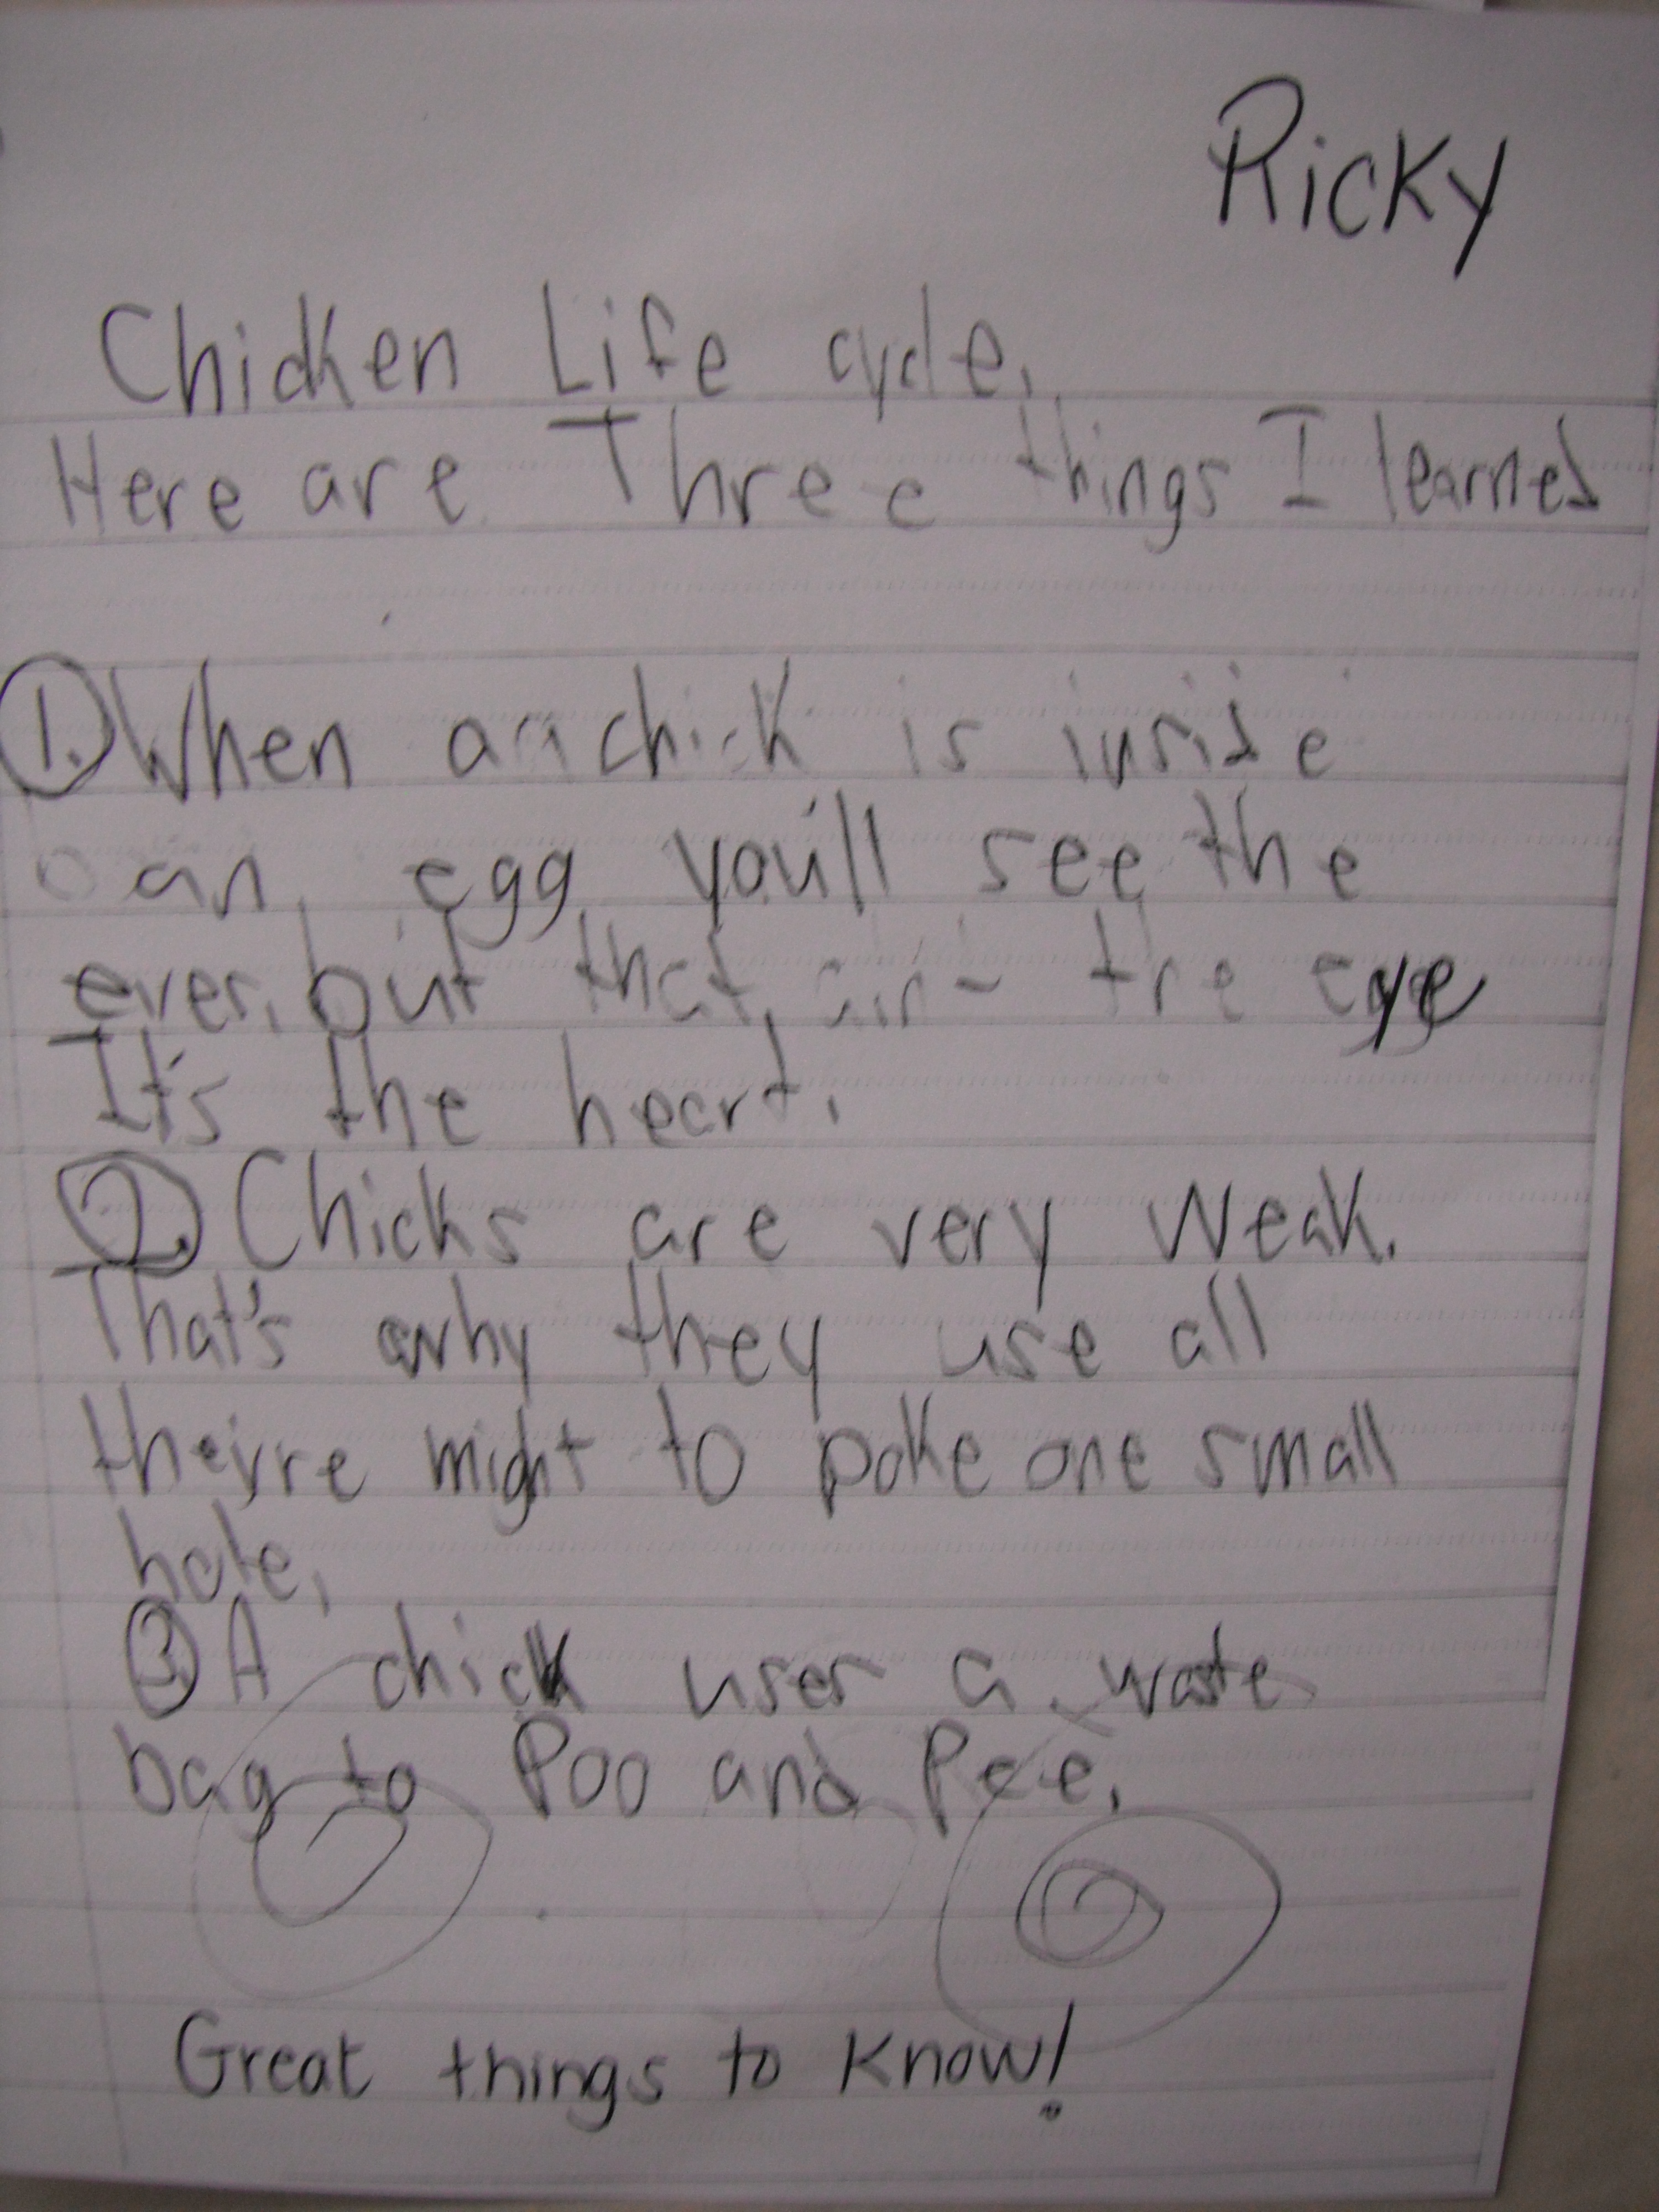 Ricky
Chicken Life cycle.
Here are Three things I learned
1. When a chick is inside
an egg you'll see the
eyes, but that ain't the eye
It's the heart.
2. Chicks are very weak.
That's why they use all
theirre might to poke one small
hole.
3. A chick uses a waste
bag to Poo and Pee.
Great things to know!